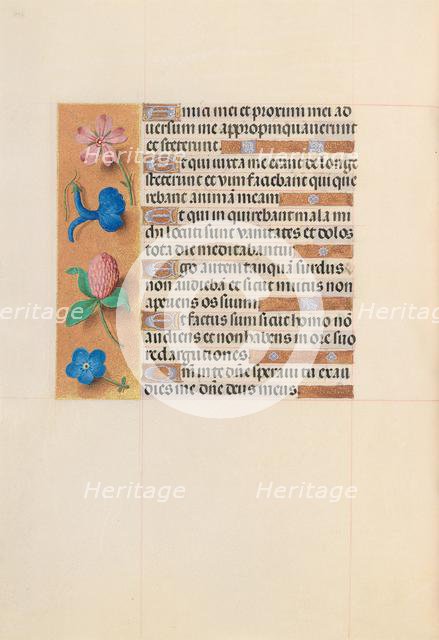 Amici mei et proximi mei ad
uersum me appropinquauerunt
et steterunt
Et qui iuxta me erant de longe
steterunt et vim faciebant qui que
rebant animam meam
Et qui inquirebant mala mi
chi locuti sunt vanitates et dolos
tota die meditabantur
Ego autem tanquã surdus
non audiebã et sicut mutus non
aperiens os suum
Et factus sum sicut homo nõ
audiens et non habens in ore suo
redargutiones
Qm̃ in te dñe speraui tu exau
dies me dñe deus meus
Heritage
Heritage
Heritage
Heritage
Heritage
Heritage